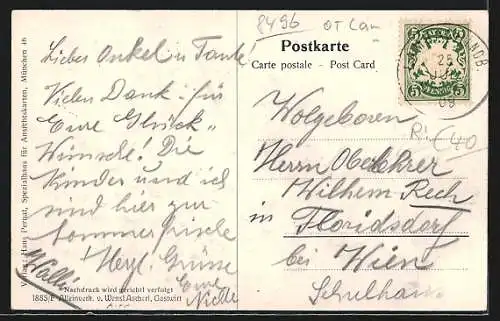 8496
Postkarte
Carte postale – Post Card
BAYERN
5 PFENNIG 5
25
08
Lieber Onkel u Tante!
Vielen Dank für
Eure Glück-
Wünsche! Die
Kinder und ich
sind hier zur
Sommerfrische
Herzl. Grüsse
Eure
Wolgeboren
Herrn Oberlehrer
Wilhelm Rech
in Floridsdorf
bei Wien
Schulhaus
Verlag: Hans Pernat, Spezialhaus für Ansichtskarten, München
Nachdruck wird gerichtl verfolgt
1885/E Alleinverk. v. Wenzl Ascherl, Gastwirt